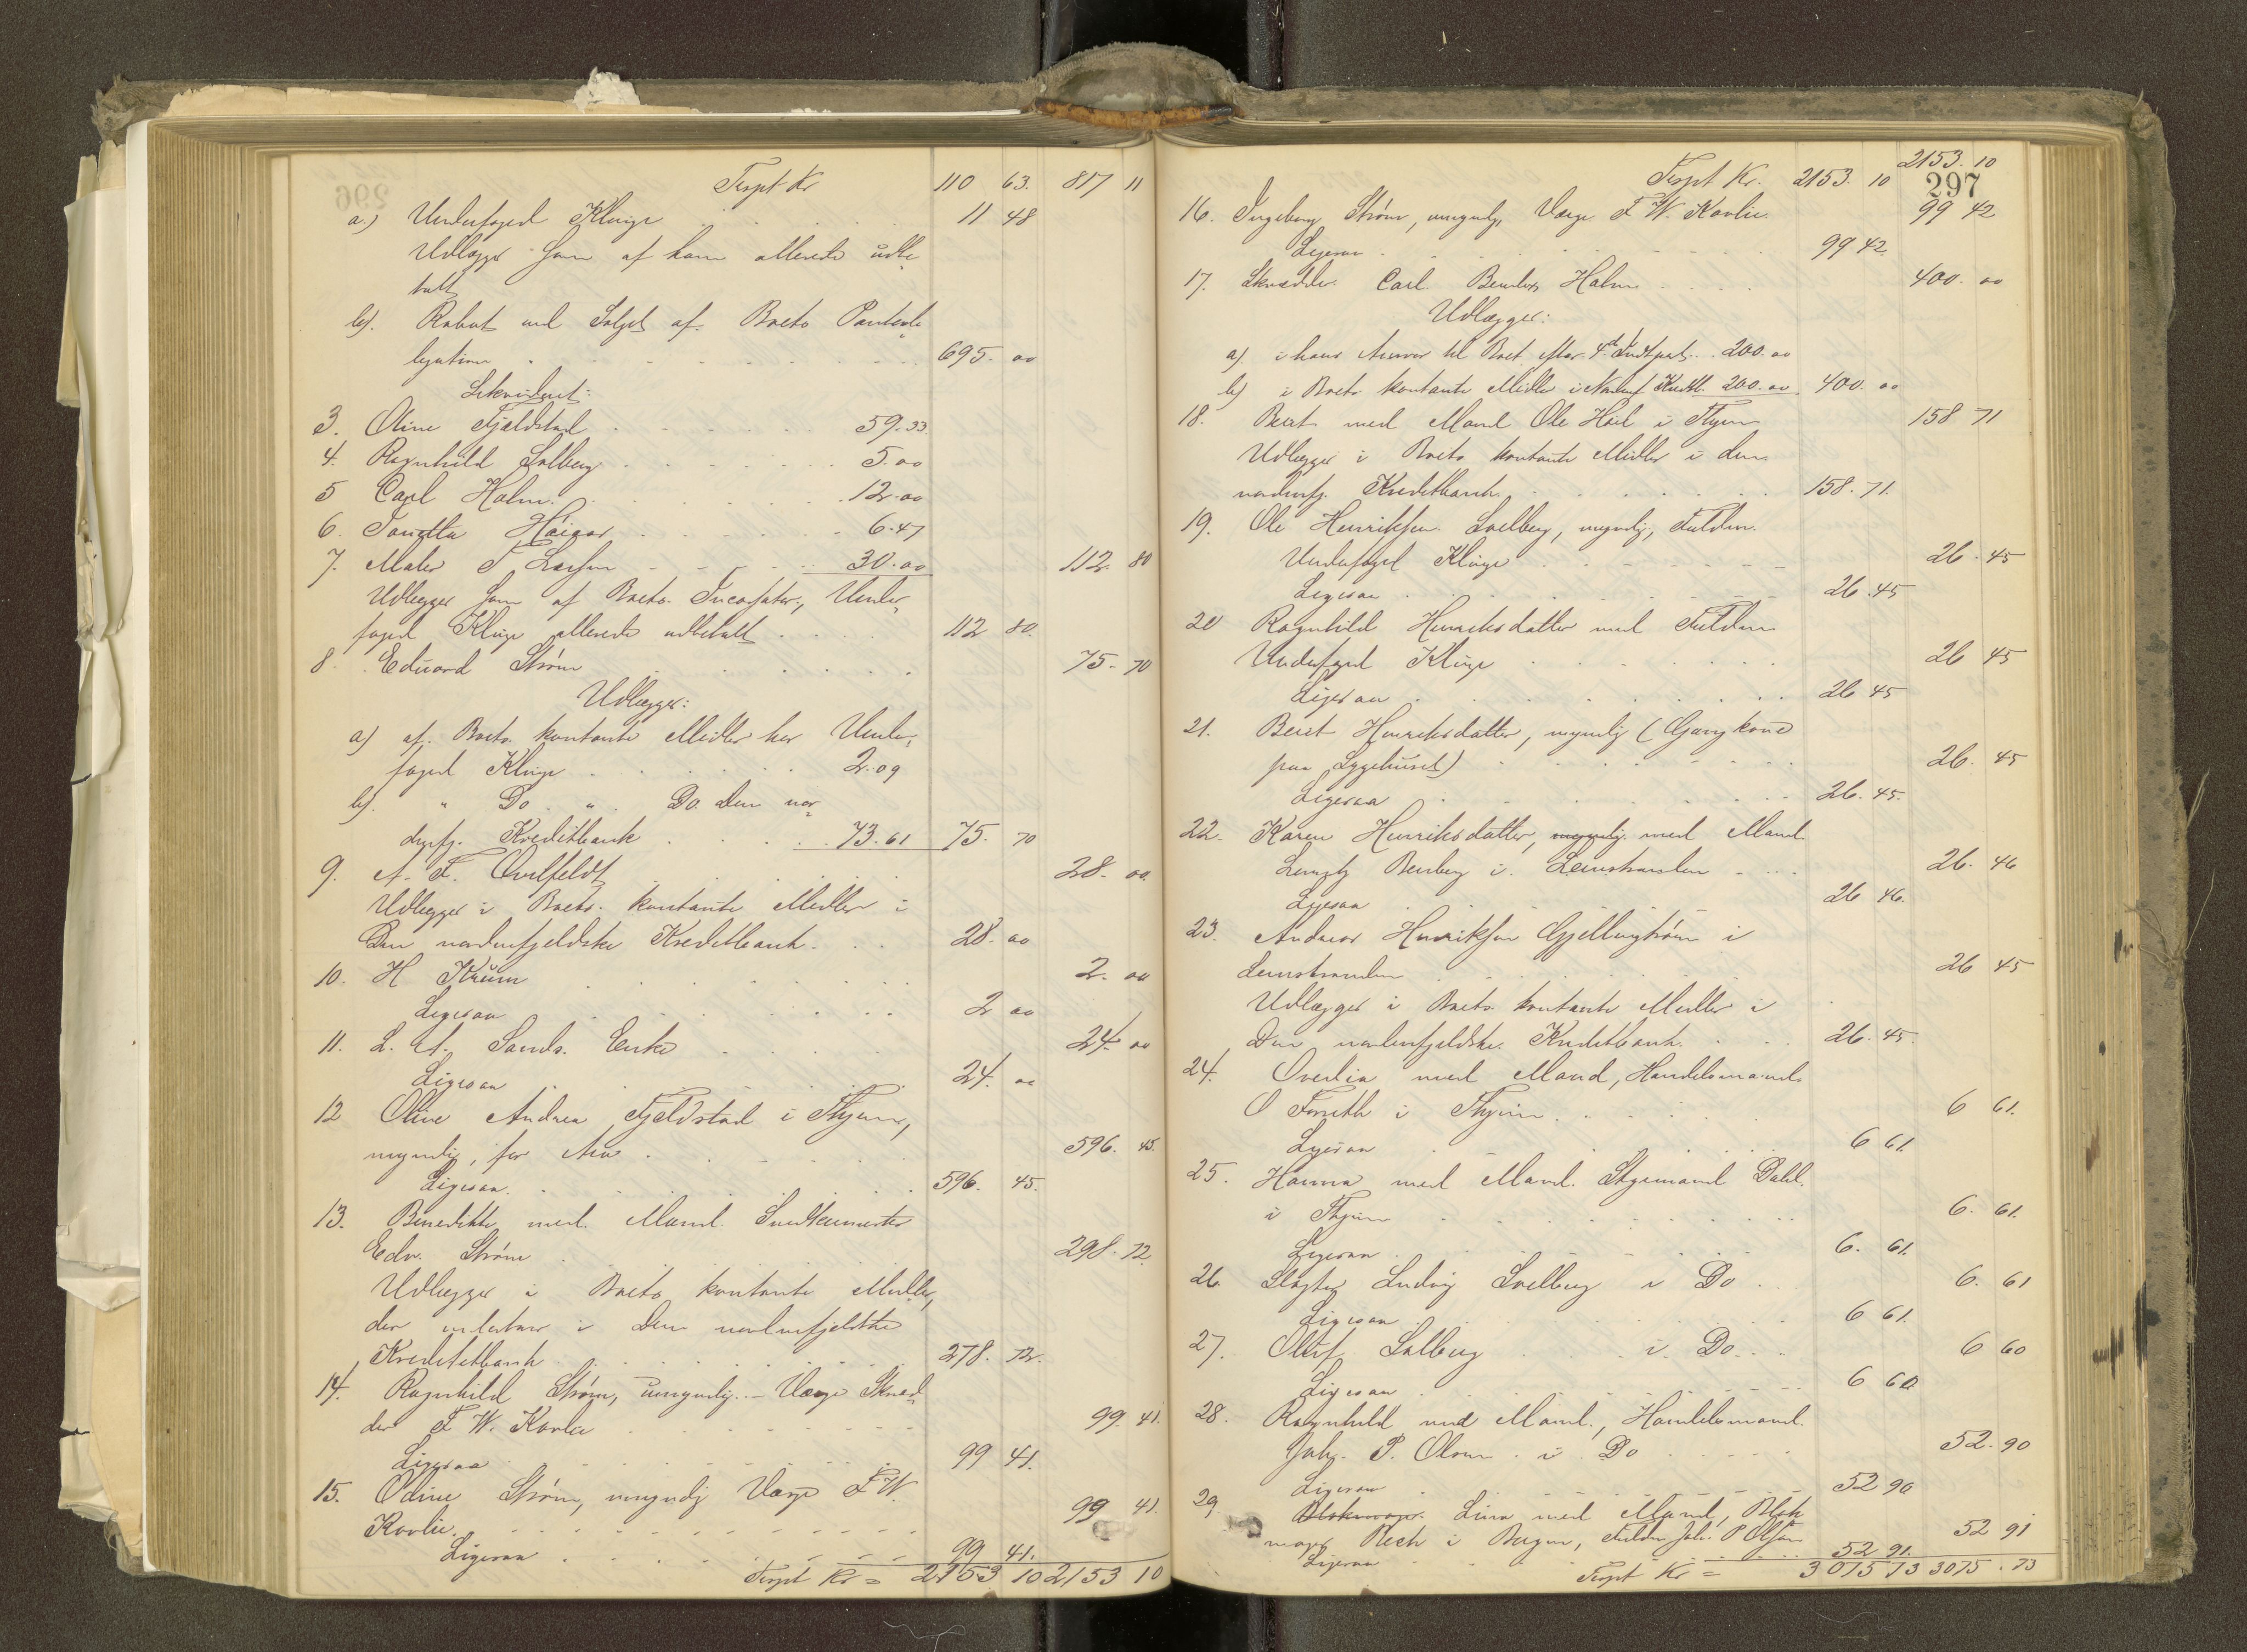 Trspt Kr 110 63. 817 11
a.) Underfoged Klinge 11 48
Udlægges ham af ham allerede udbe
talt
b). Rabat ved Salget af Boets Panteob
ligation 695. 00
Likvideret:
3. Oline Fjeldstad 59.33
4. Ragnhild Solberg 5.00
5 Carl Holm 12.00
6. 6.47
7. Maler T Larsen 30.00 112. 80
Udlægges ham af Boets Incasator, Under
foged Klinge allerede udbetalt 112 80.
8. Eduard Strøm 75. 70
Udlægges:
a) af Boets kontante Midler hos Under
foged Klinge 2.09
b). " Do " Do. Den nor
denfj. Kreditbank 73.61 75. 70
9. A. F. Qvilfeldt 28. 00.
Udlægges i Boets kontante Midler i
Den nordenfjeldske Kreditbank 28. 00
10. H Krüm 2. 00
Ligesaa 2 00
11. L. A. Sands. Enke 24. 00
Ligesaa 24. 00
12 Oline Andrea Fjeldstad i Thjem,
myndig, for Arv 596. 45.
Ligesaa. 596. 45.
13. Benedikte med Mand Snedkermester
Edv. Strøm 298. 72
Udlægges i Boets kontante Midler,
der indestaar i Den nordenfjeldske
Kreditbank 298. 72.
14. Ragnhild Strøm, umyndig - Værge Skræd
der F W. Kovlie 99. 41.
Ligesaa 99 41.
15. Odine Strøm, umyndig Værge F W.
Kovlie. 99 41.
Ligesaa 99 41.
Trspt Kr = 2153 10 2153 10
2153. 10
Trspt Kr. 2153. 10 297
16. Ingeborg Strøm, umyndig, Værge F W. Kovlie 99 42
Ligesaa 99 42.
17. Skrædder Carl Holm 400. 00
Udlægges:
a). i hans Ansvar til Boet efter 4de Indtpost 200.00
b) i Boets kontante Midler i Nordenf Kredtb. 200.00 400. 00
18. Berit med Mand Ole Höil i Thjem 158 71
Udlægges i Boets kontante Midler i den
nordenfj. Kreditbank 158. 71.
19. Ole Henriksen Solberg, myndig, Fuldm.
Underfoged Klinge 26. 45
Ligesaa 26. 45
20 Ragnhild Henriksdatter med Fuldm
Underfoged Klinge 26 45
Ligesaa 26 45
21. Berit Henriksdatter, myndig (Gangkone
paa Sygehuset) 26. 45
Ligesaa 26. 45.
22. Karen Henriksdatter, myndig med Mand
i Leinstranden 26. 46
Ligesaa 26 46.
23. Andreas Henriksen i
Leinstranden 26 45
Udlægges i Boets kontante Midler i
Den nordenfjeldske Kreditbank. 26. 45.
24. Ovedia med Mand, Handelsmand
O Forseth i Thjem 6 61.
Ligesaa 6 61.
25. Hanna med Mand Styrmand Dahl.
i Thjem 6. 61.
Ligesaa 6. 61.
26 Slagter Ludvig Solberg i Do 6. 61
Ligesaa 6 61.
27. Oluf Solberg i Do 6 60
Ligesaa 6 60
28. Ragnhild med Mand, Handelsmand
Joh. P. Olsen i Do 52. 90
Ligesaa 52 90
29. Blokmager Lina med Mand, Blok
mager Rech i Bergen, Fuldm Joh. P Olsen 52 91
Ligesaa 52 91.
Trspt Kr = 3075 73 3075. 73